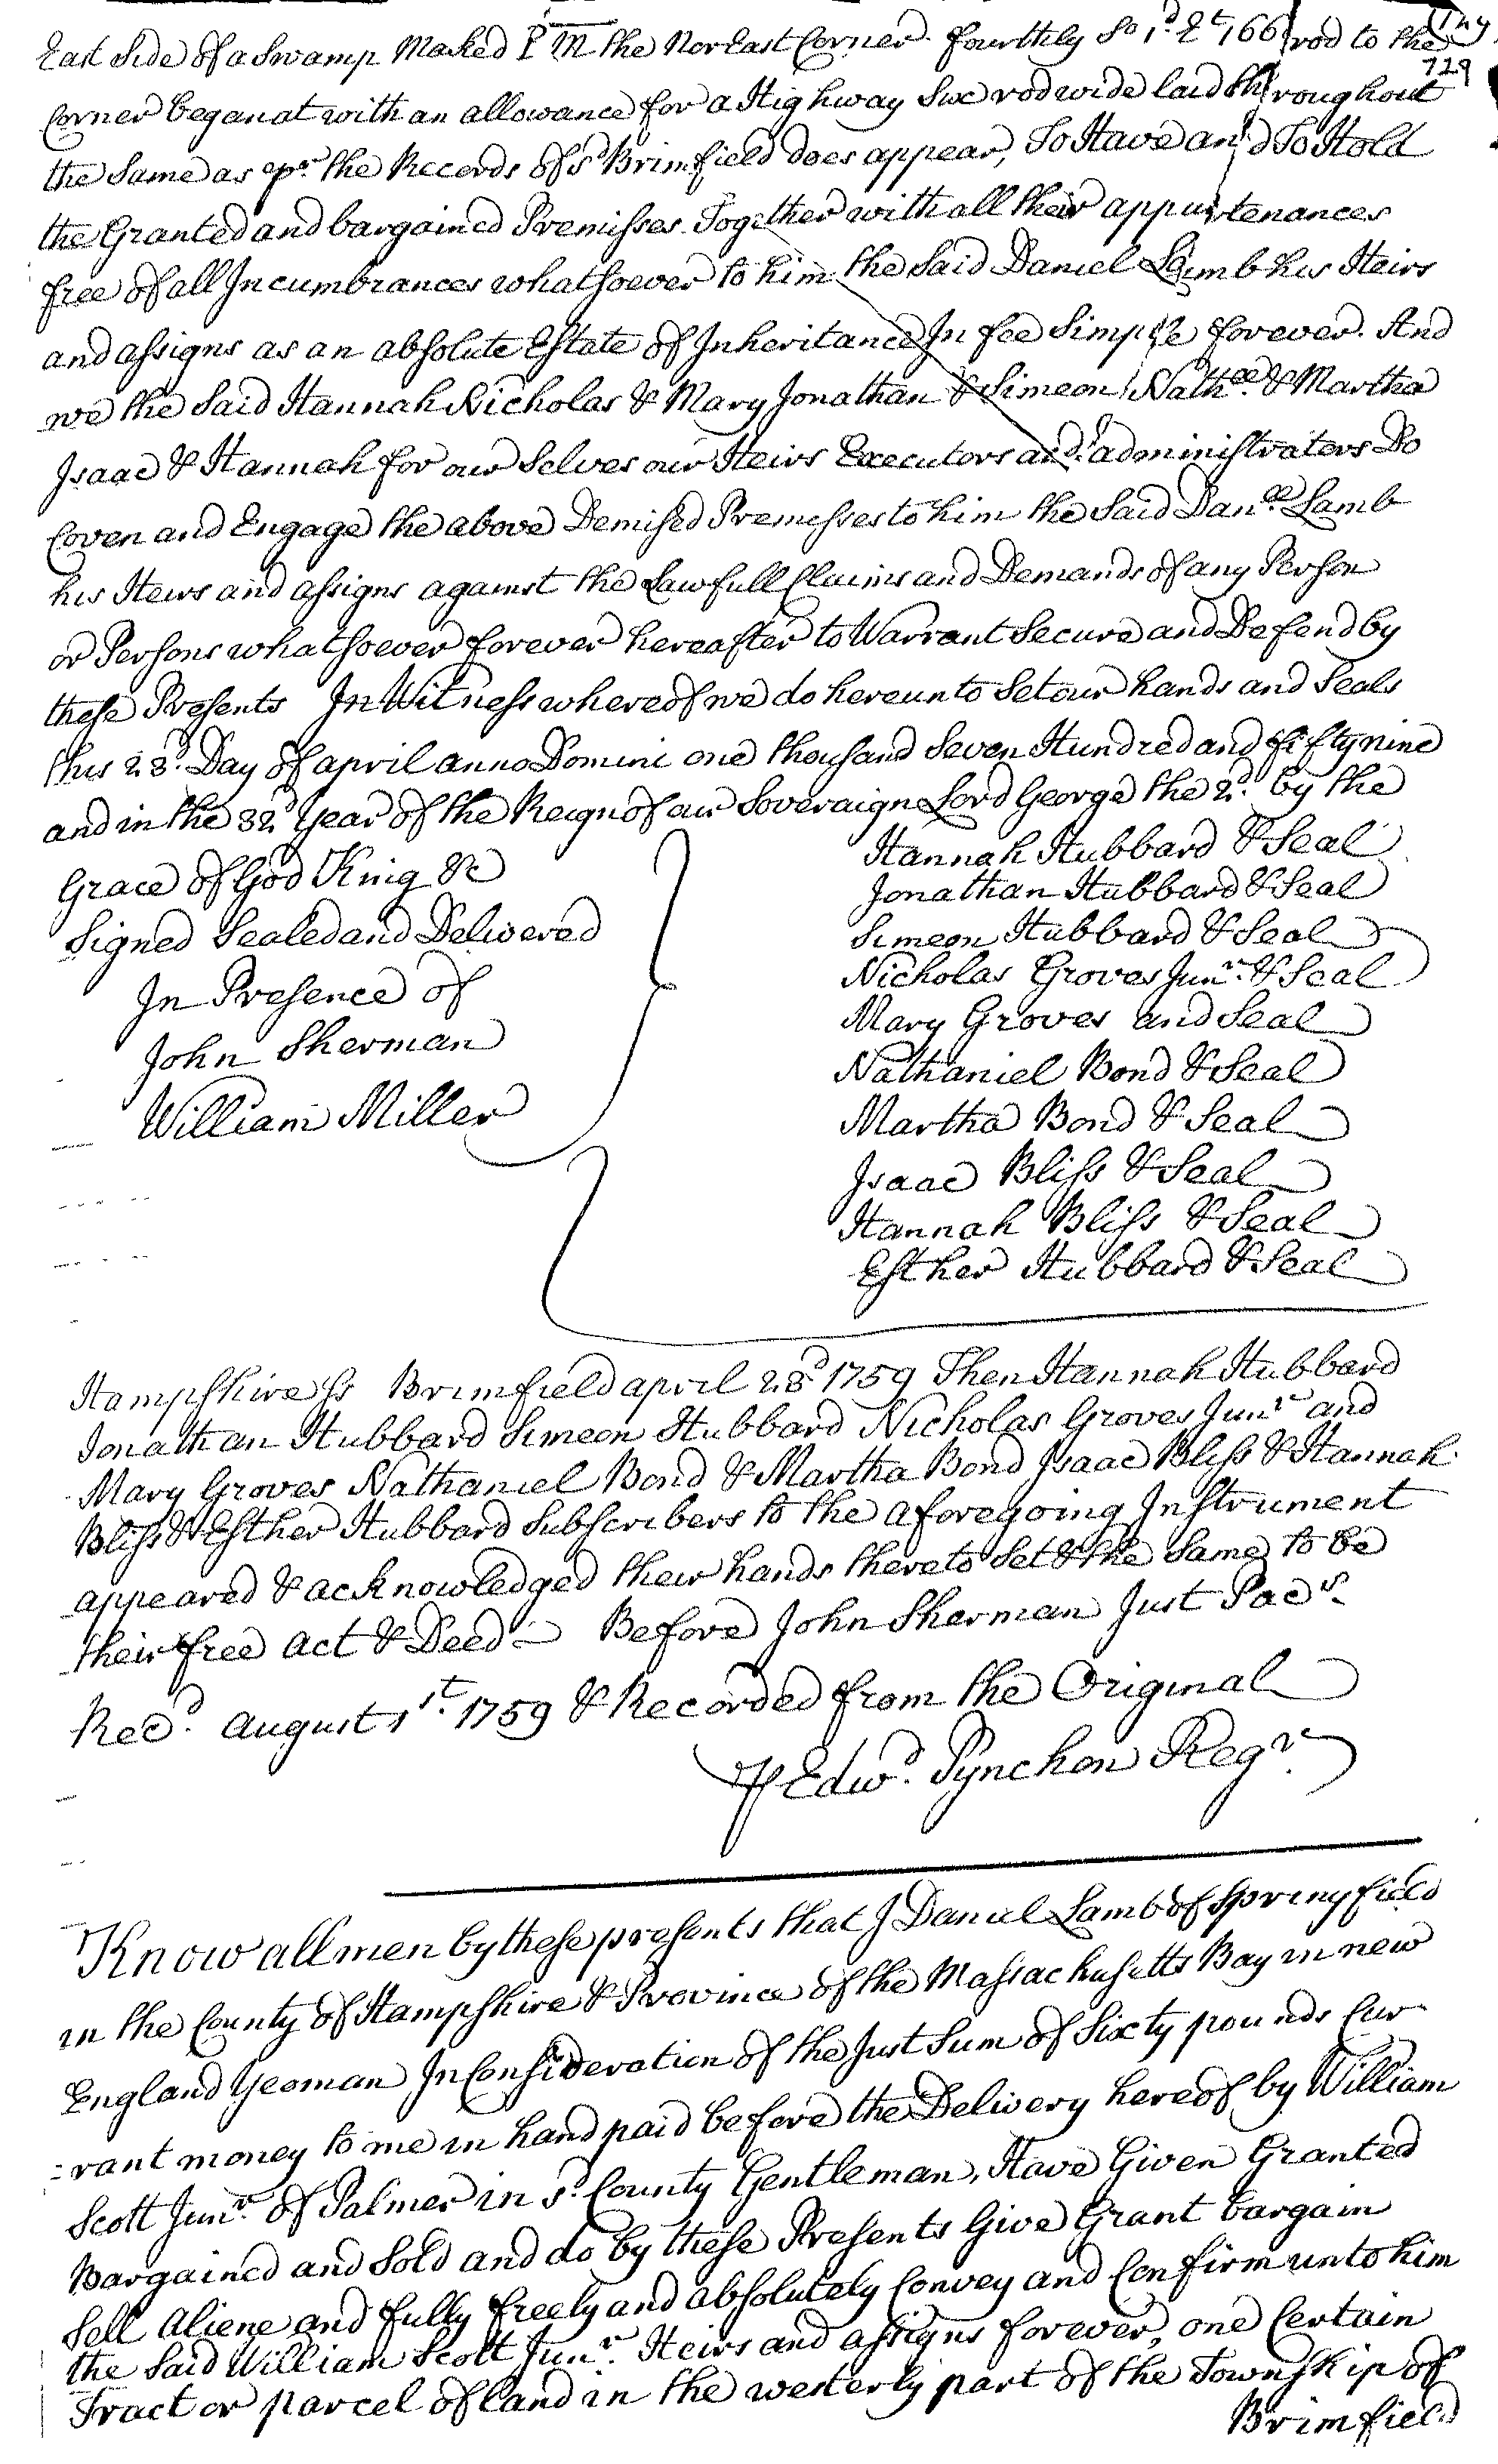 729
East Side of a Swamp Marked P M the Nor East Corner. fourthly So 1d 2t, 66 rod to the
Corner began at with an allowance for a Highway Six rod wide laid throughout
the Same as pr the Records of sd Brimfield does appear, To Have and To Hold
the Granted and bargained Premisses Together with all their appurtenances
free of all Incumbrances whatsoever to him the Said Daniel Lamb his Heirs
and assigns as an absolute Estate of Inheritance In fee Simple forever. And
we the Said Hannah Nicholas & Mary Jonathan & Simeon Nathll & Martha
Isaac & Hannah for our Selves our Heirs Executors and administrators Do
Coven and Engage the above Demised Premesses to him the Said Danll Lamb
his Heirs and assigns against the Lawfull Claims and Demands of any Person
or Persons whatsoever forever hereafter to Warrant Secure and Defend by
these Presents In Witness whereof we do hereunto Set our hands and Seals
this 23d Day of april anno Domini one thousand Seven Hundred and fifty nine
and in the 32d Year of the Reign of our Soveraigne Lord George the 2d by the
Grace of God King &c
Signed Sealed and Delivered
In Presence of
John Sherman
William Miller
Hannah Hubbard & Seal
Jonathan Hubbard & Seal
Simeon Hubbard & Seal
Nicholas Groves Junr & Seal
Mary Groves and Seal
Nathaniel Bond & Seal
Martha Bond & Seal
Isaac Bliss & Seal
Hannah Bliss & Seal
Esther Hubbard & Seal
Hampshire Ss Brimfield april 23d 1759 Then Hannah Hubbard
Jonathan Hubbard Simeon Hubbard Nicholas Groves Junr and
Mary Groves Nathaniel Bond & Martha Bond Isaac Bliss & Hannah
Bliss & Esther Hubbard Subscribers to the aforegoing Instrument
appeared & acknowledged their hands thereto Set & the Same to be
their free act & Deed Before John Sherman Just Pacs
Recd. august 1st. 1759 & Recorded from the Original
pr Edwd. Pynchon Regr.
Know all men by these presents that I Daniel Lamb of Springfield
in the County of Hampshire & Province of the Massachusetts Bay in new
England Yeoman In Consideration of the Just Sum of Sixty pounds Cur
=rant money to me in hand paid before the Delivery hereof by William
Scott Junr. of Palmer in sd. County Gentleman, Have Given Granted
Bargained and Sold and do by these Presents Give Grant bargain
Sell Aliene and fully freely and absolutely Convey and Confirm unto him
the Said William Scott Junr. Heirs and assigns forever, one Certain
Tract or parcel of land in the westerly part of the Township of
Brimfield